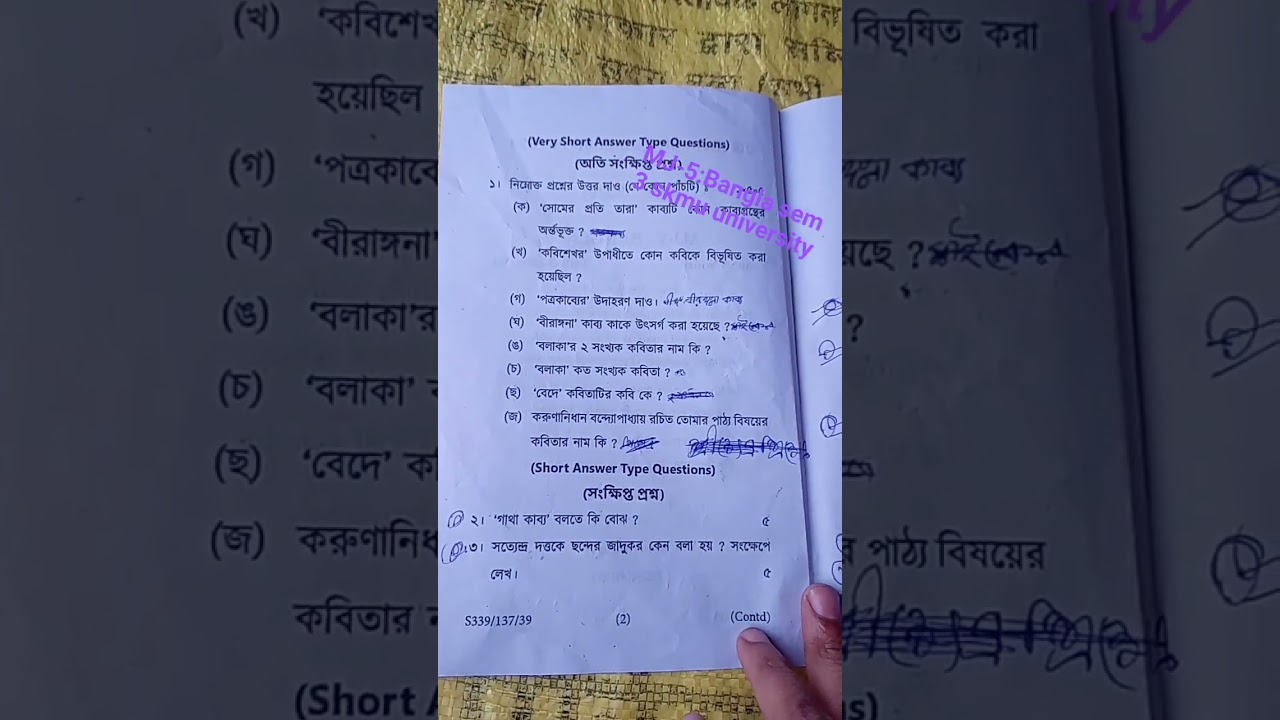 (Very Short Answer Type Questions)
(অতি সংক্ষিপ্ত প্রশ্ন)
MJ-5:Bangla sem
3 skmu university
১। নিম্নোক্ত প্রশ্নের উত্তর দাও (যে কোন পাঁচটি) ঃ
(ক) ‘সোমের প্রতি তারা’ কাব্যটি কোন কাব্যগ্রন্থের
অর্ন্তভূক্ত ?
(খ) ‘কবিশেখর’ উপাধীতে কোন কবিকে বিভূষিত করা
হয়েছিল ?
(গ) ‘পত্রকাব্যের’ উদাহরণ দাও। বীরাঙ্গনা কাব্য
(ঘ) ‘বীরাঙ্গনা’ কাব্য কাকে উৎসর্গ করা হয়েছে ?
(ঙ) ‘বলাকা’র ২ সংখ্যক কবিতার নাম কি ?
(চ) ‘বলাকা’ কত সংখ্যক কবিতা ?
(ছ) ‘বেদে’ কবিতাটির কবি কে ?
(জ) করুণানিধান বন্দ্যোপাধ্যায় রচিত তোমার পাঠ্য বিষয়ের
কবিতার নাম কি ?
(Short Answer Type Questions)
(সংক্ষিপ্ত প্রশ্ন)
২। ‘গাথা কাব্য’ বলতে কি বোঝ ? ৫
৩। সত্যেন্দ্র দত্তকে ছন্দের জাদুকর কেন বলা হয় ? সংক্ষেপে
লেখ। ৫
S339/137/39 (2) (Contd)